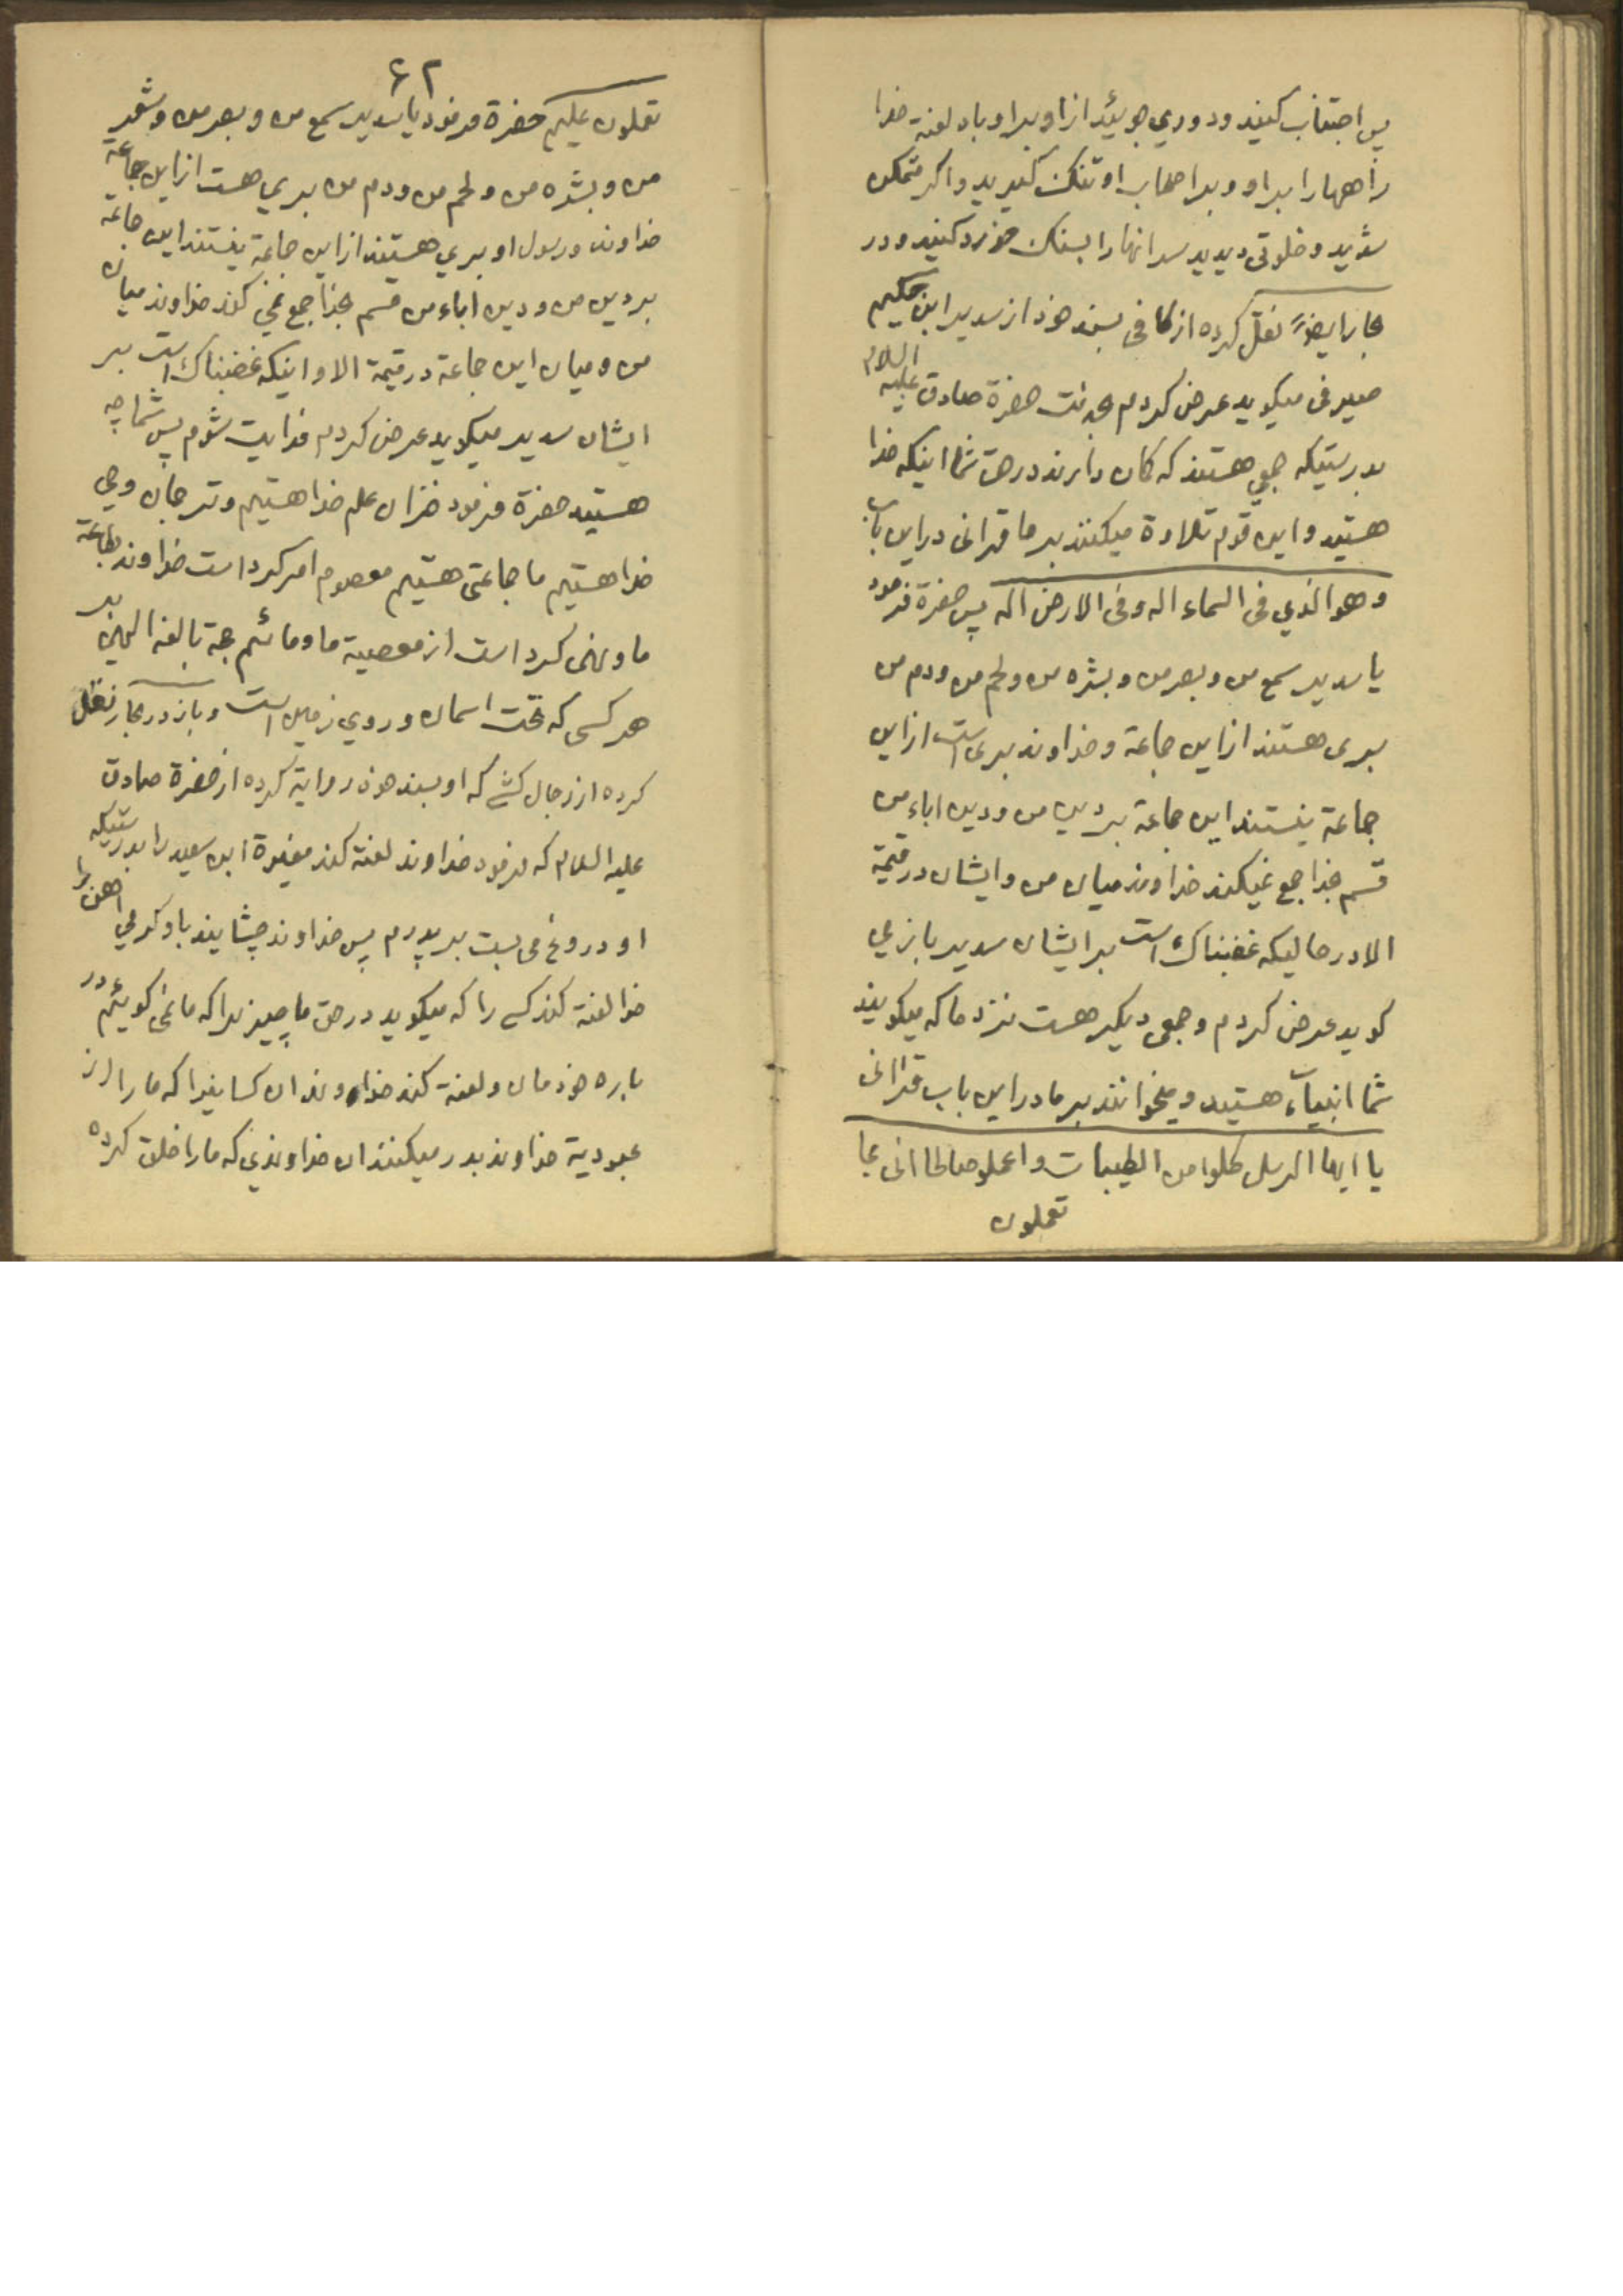 پس اجتناب کنید و دوري جوئید از او براو باد لعنة خدا
راهها را براو و براصحاب او تنک کیرید و اکر متمکن
شدید و خلوتی دیدید سر انها را بسنک خورد کنید و در
بحار ایضاً نقل کرده از کافی بسند خود از سدیر ابن حکیم
صیرفی میکوید عرض کردم بخدمت حضرة صادق علیه السلام
بدرستیکه جمعي هستند که کمان دارند در حق شما اینکه خدا
هستید و این قوم تلاوة میکنند بر ما قرانی در این باب
و هو الذي فی السماء اله و فی الارض اله پس حضرة فرمود
یا سدیر سمع من و بصر من و بشره من و لحم من و دم من
بری هستند از این جماعة و خداوند بری است از این
جماعة نیستند این جماعة بر دین من و دین اباء من
قسم بخدا جمع نمیکند خداوند میان من و ایشان در قیمة
الا در حالیکه غضبناک است بر ایشان سدیر باز مي
کوید عرض کردم و جمعی دیکر هست نزد ما که میکویند
شما انبیاء هستید و میخوانند بر ما در این باب قرانی
یا ایها الرسل کلوا من الطیبات و اعملو صالحا انی بما
تعملون
۶۲
تعملون علیم حضرة فرمود یا سدیر سمع من و بصر من و شعر
من و بشره من و لحم من و دم من بري هست از این جماعة
خداوند و رسول او بري هستند از این جماعة نیستند این جماعة
بر دین من و دین اباء من قسم بخدا جمع نمي کند خداوند میان
من و میان این جماعة در قیمة الا و اینکه غضبناک است بر
ایشان سدیر میکوید عرض کردم فدایت شوم پس شما چه
هستید حضرة فرمود خزان علم خدا هستیم و ترجمان وحي
خدا هستیم ما جماعتی هستیم معصوم امر کرد است خداوند بطاعة
ما و نهی کرد است از معصیة ما و مائیم حجة بالغه الهیّه بر
هر کسی که تحت اسمان و روي زمین است و باز در بحار نقل
کرده از رجال کشّي که او بسند خود روایة کرده از حضرة صادق
علیه السلام که فرمود خداوند لعنة کند مغیرة ابن سعید را بدرستیکه
او دروغ می بست بر پدرم پس خداوند چشانید باو کرمي اهن را
خدا لعنة کند کسي را که میکوید در حق ما چیزیرا که ما نمی کوئیم در
باره خودمان و لعنة کند خداوند ان کسانیرا که ما را از
عبودیة خداوند بدر میکنند ان خداوندي که ما را خلق کرده